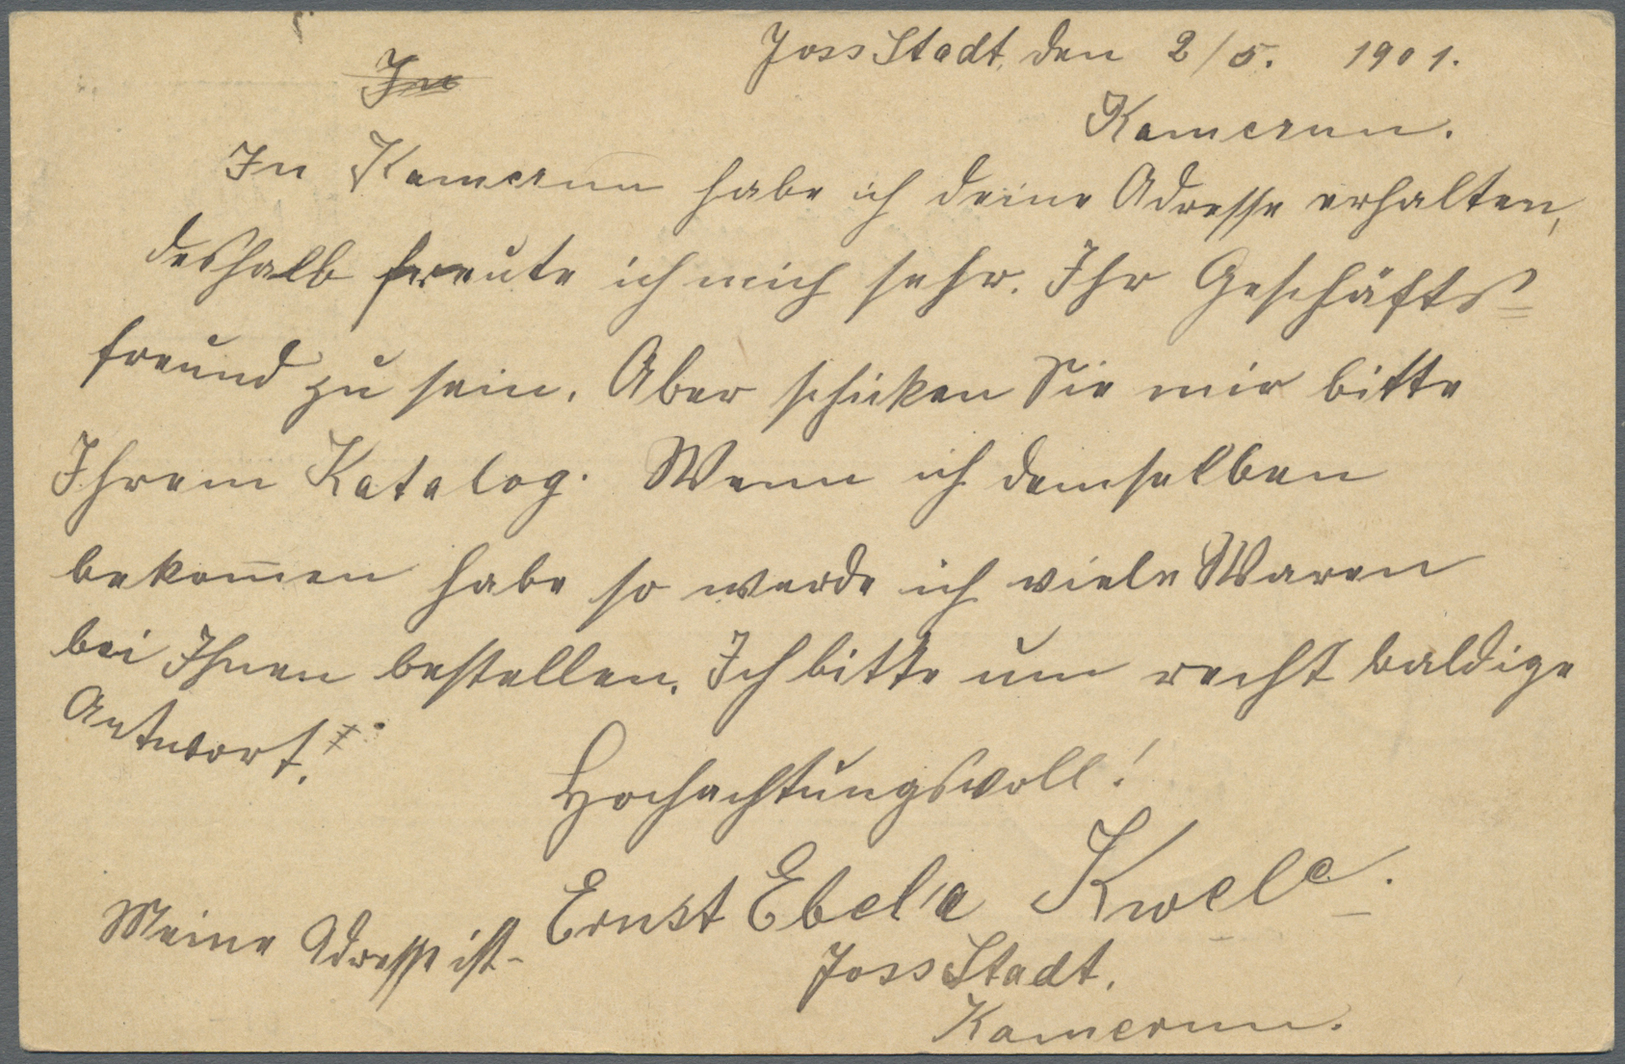 Joss Stadt, den 2/5. 1901.
In
Kamerun.
In Kamerun habe ich deine Adresse erhalten,
deshalb freute ich mich sehr. Ihr Geschäfts=
freund zu sein. Aber schicken Sie mir bitte
Ihrem Katalog. Wenn ich demselben
bekom̄en habe so werde ich viele Waren
bei Ihnen bestellen. Ich bitte um recht baldige
Antwort!
Hochachtungsvoll!
Ernst Ebele Kwele.
Meine Adresse ist-
Joss Stadt.
Kamerun.